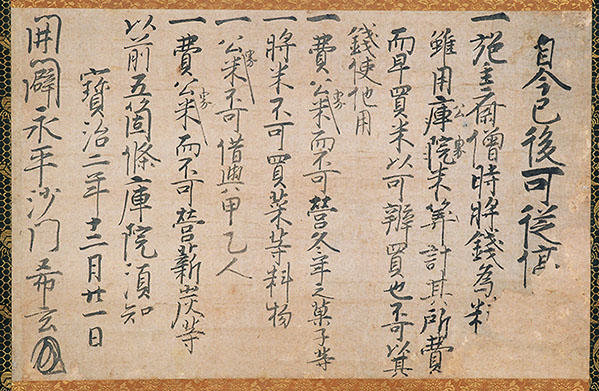 自今已後可從停
一施主斎僧時將錢為料
雖用庫院公界米筭計其所費
而早買米以可辨買也不可以其
錢使他用
一費公界米而不可營冬年之菓子等
一將米不可買菜等料物
一公界米不可借與甲乙人
一費公界米而不可營薪炭等
以前五箇條庫院須知
寶治二年十二月廿一日
開闢永平沙門希玄